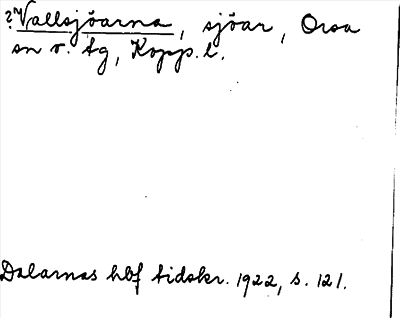 ?Vallsjöarna, sjöar, Orsa
sn o. tg, Kopp. l.
Dalarnas hbf tidskr. 1922, s. 121.